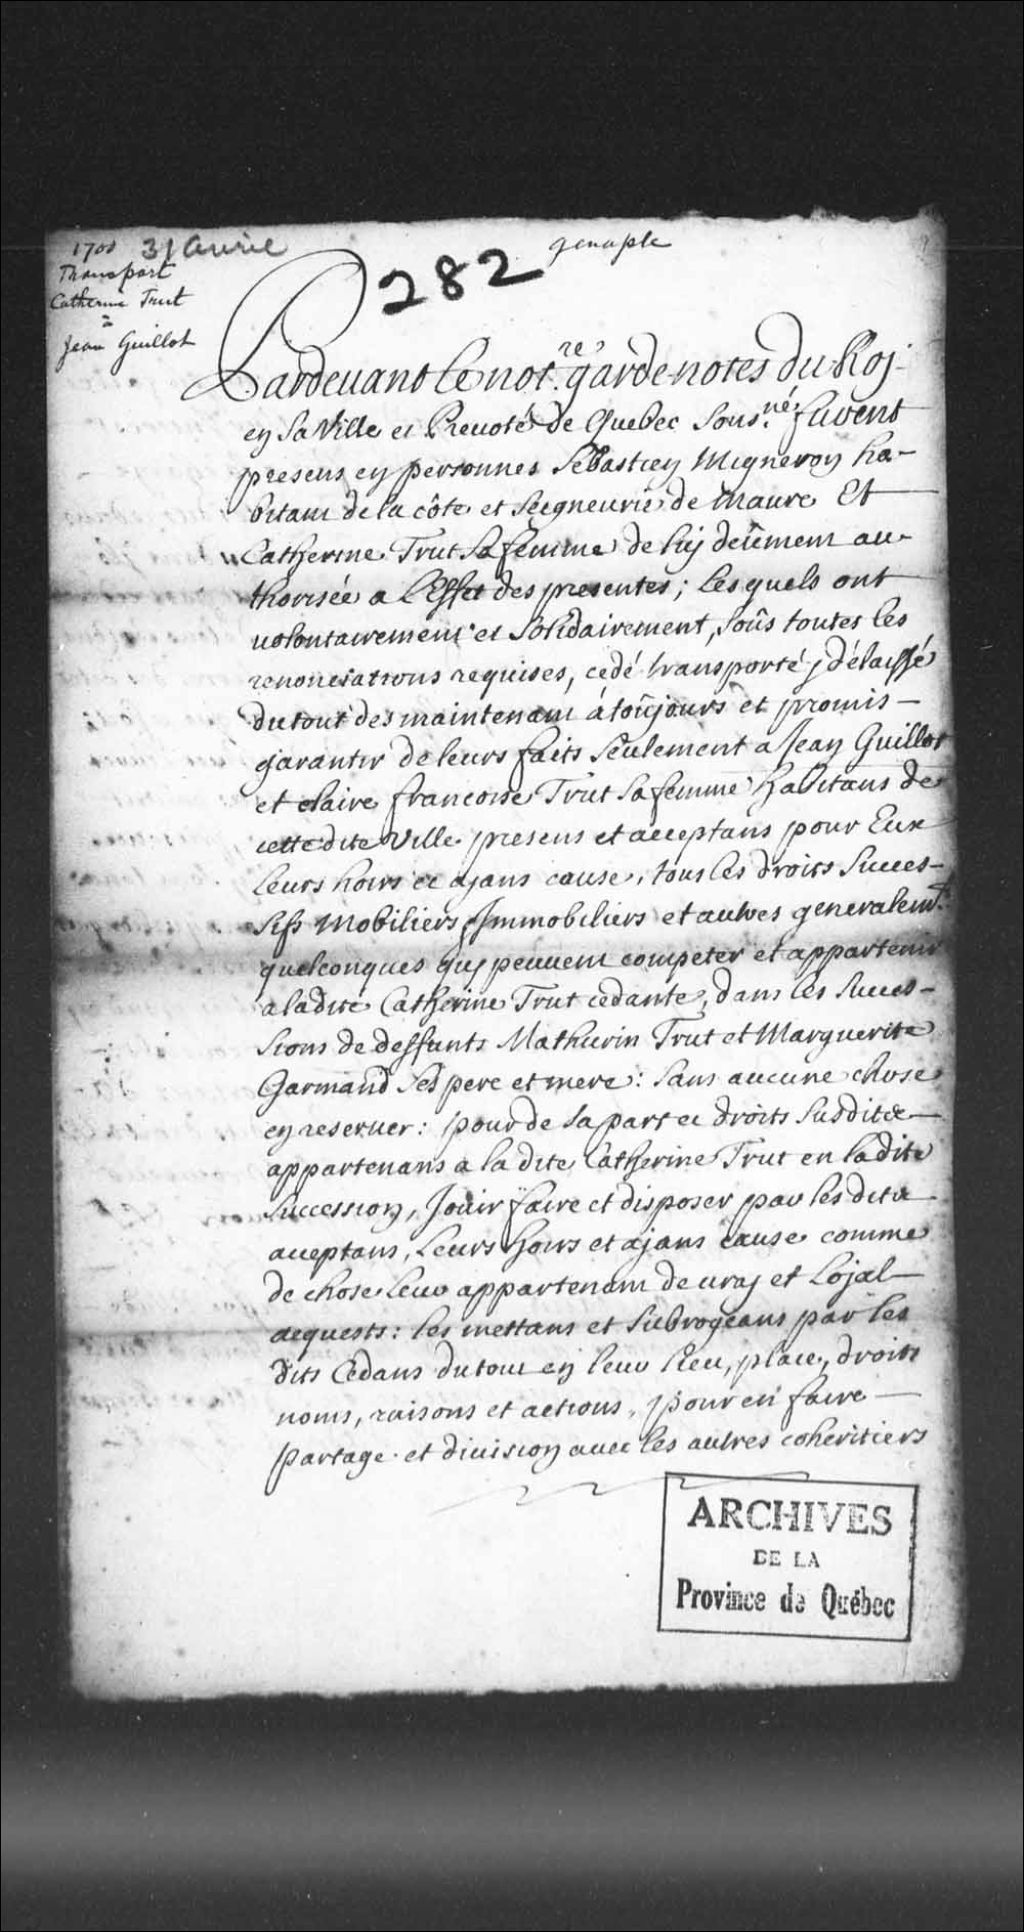 1700 31 avrie
Transport
Catherine Trut
a
Jean Guillot
282
genaple
Pardeuant le notre. garde-notes du Roj
en sa Ville et Preuoté de Quebec sousné. furent
presens en personnes Sebastien Migneron ha-
bitant de la côte et seigneurie de Maure Et
Catherine Trut sa femme de luj deüement au-
thorisée a l'Effet des presentes; lesquels ont
uolontairement et solidairement, soûs toutes les
renonciations requises, cedé transporté, délaissé
du tout des maintenant à toûjours et promis —
garantir de leurs faits seulement a Jean Guillot
et claire francoise Trut sa femme habitans de
cette dite Ville presens et acceptans pour Eux
leurs hoirs et ajans cause, tous les droits succes-
sifs Mobiliers, Immobiliers et autres generalemt.
quelconques quj peuuent competer et appartenir
a ladite Catherine Trut cedante, dans les succes-
sions de deffunts Mathurin Trut et Marguerite
Garmand ses pere et mere: sans aucune chose
en reseruer: pour de sa part et droits susdits —
appartenans a la dite Catherine Trut en la dite
succession, Jouir faire et disposer par les dits
acceptans, leurs hoirs et ajans cause comme
de chose leur appartenant de uraj et lojal —
acquests: les mettans et subrogeans par les
dits Cedans du tout en leur lieu, place, droits
noms, raisons et actions, pour en faire —
partage et diuision auec les autres coheritiers
ARCHIVES
DE LA
Province de Québec